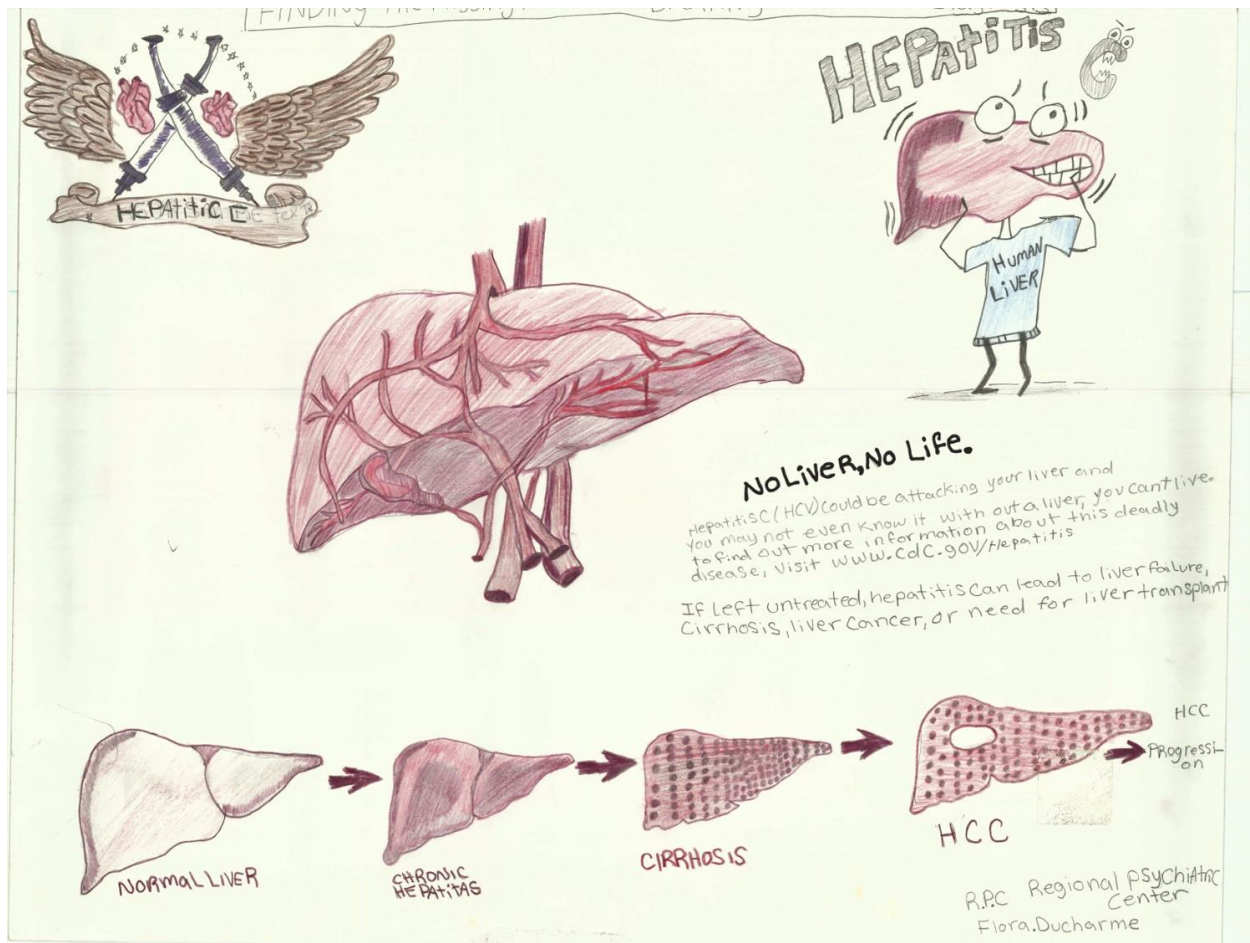 FINDING
HEPATITIS C
HEPAtitiC C
HUMAN
LiVER
NO LIVER, NO LIFE.
HepatitisC (HCV) could be attacking your liver and
you may not even know it with out a liver, you cant live.
to find out more information about this deadly
disease, visit www.cdc.gov/Hepatitis
If Left untreated, hepatitis can lead to liver failure,
Cirrhosis, liver cancer, or need for liver transplant
NORMAL LIVER
CHRONIC
HEPATITAS
CIRRHOSIS
HCC
HCC
PRogressi-
on
R.P.C Regional PSyChiAtric
Center
Flora.Ducharme